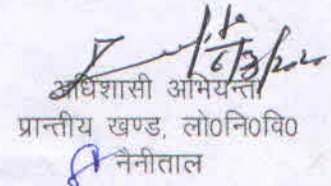 अधिशासी अभियन्ता
प्रान्तीय खण्ड, लो0नि0वि0
नैनीताल